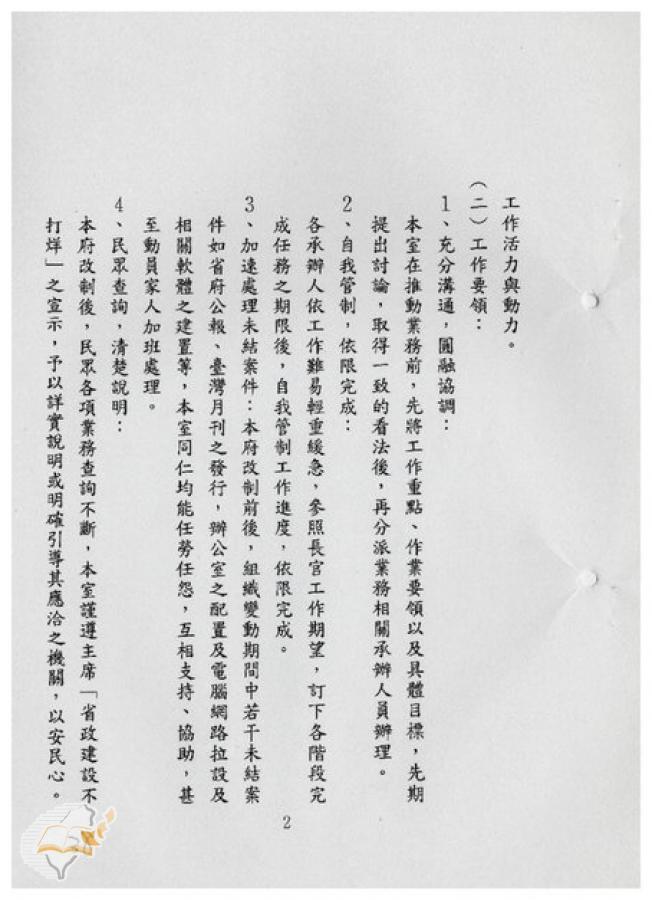 工作活力與動力。
（二）工作要領：
1、充分溝通，圓融協調：
本室在推動業務前，先將工作重點、作業要領以及具體目標，先期
提出討論，取得一致的看法後，再分派業務相關承辦人員辦理。
2、自我管制，依限完成：
各承辦人依工作難易輕重緩急，參照長官工作期望，訂下各階段完
成任務之期限後，自我管制工作進度，依限完成。
3、加速處理未結案件：本府改制前後，組織變動期間中若干未結案
件如省府公報、臺灣月刊之發行，辦公室之配置及電腦網路拉設及
相關軟體之建置等，本室同仁均能任勞任怨，互相支持、協助，甚
至動員家人加班處理。
4、民眾查詢，清楚說明：
本府改制後，民眾各項業務查詢不斷，本室謹遵主席「省政建設不
打烊」之宣示，予以詳實說明或明確引導其應洽之機關，以安民心。
2